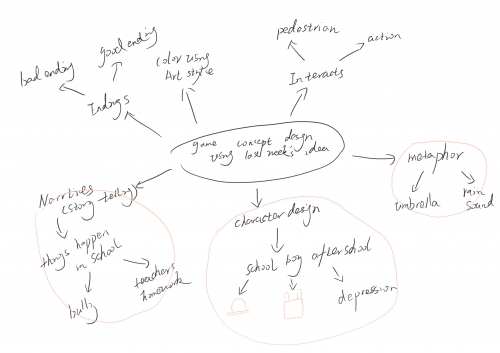 pedestrian
action
Interacts
good ending
bad ending
Indings
color using
Art style
game concept design
using last week's idea
metaphor
umbrella
rain
sound
Narrtives
(story telling)
things happen
in school
bully
teachers
homework
character design
school boy afterschool
depression